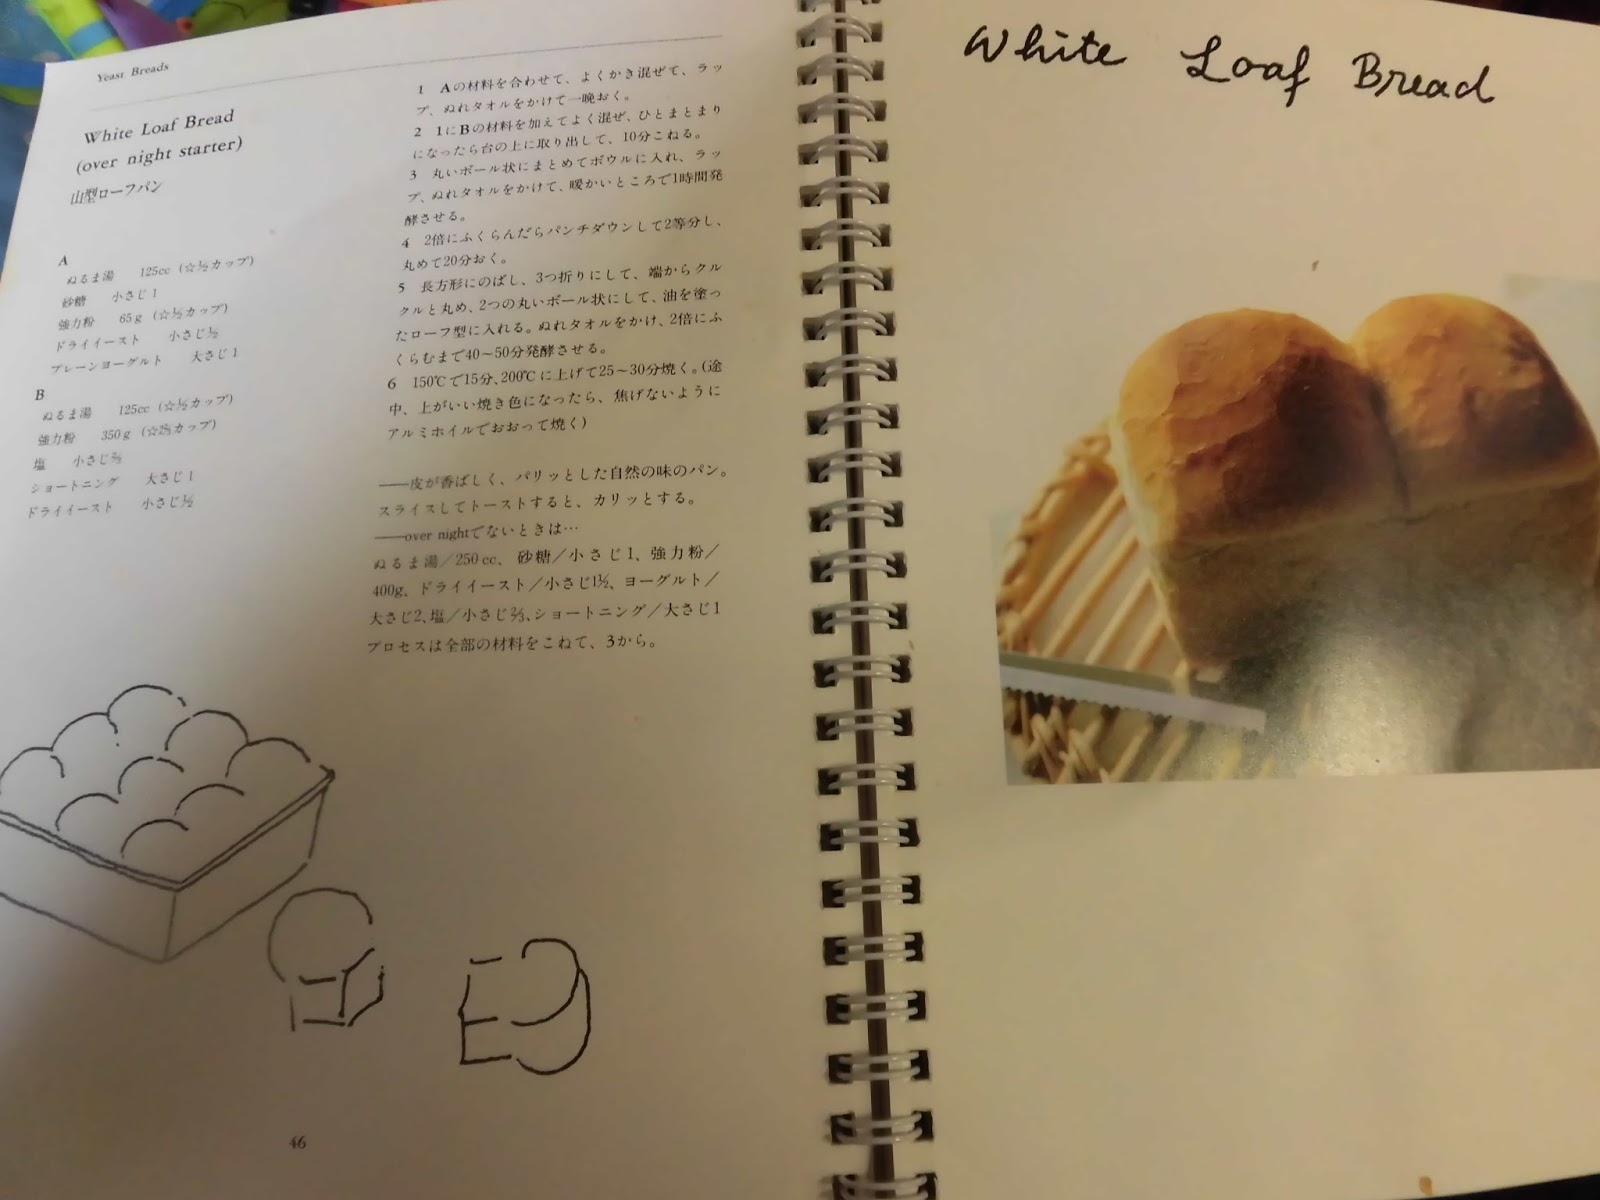 Yeast Breads
White Loaf Bread
(over night starter)
山型ローフパン
A
ぬるま湯 125cc (☆½カップ)
砂糖 小さじ1
強力粉 65g (☆½カップ)
ドライイースト 小さじ½
プレーンヨーグルト 大さじ1
B
ぬるま湯 125cc (☆½カップ)
強力粉 350g (☆2⅗カップ)
塩 小さじ⅔
ショートニング 大さじ1
ドライイースト 小さじ½
1 Aの材料を合わせて、よくかき混ぜて、ラッ
プ、ぬれタオルをかけて一晩おく。
2 1にBの材料を加えてよく混ぜ、ひとまとまり
になったら台の上に取り出して、10分こねる。
3 丸いボール状にまとめてボウルに入れ、ラッ
プ、ぬれタオルをかけて、暖かいところで1時間発
酵させる。
4 2倍にふくらんだらパンチダウンして2等分し、
丸めて20分おく。
5 長方形にのばし、3つ折りにして、端からクル
クルと丸め、2つの丸いボール状にして、油を塗っ
たローフ型に入れる。ぬれタオルをかけ、2倍にふ
くらむまで40〜50分発酵させる。
6 150℃で15分、200℃に上げて25〜30分焼く。(途
中、上がいい焼き色になったら、焦げないように
アルミホイルでおおって焼く)
――皮が香ばしく、パリッとした自然の味のパン。
スライスしてトーストすると、カリッとする。
――over nightでないときは…
ぬるま湯／250cc、砂糖／小さじ1、強力粉／
400g、ドライイースト／小さじ1½、ヨーグルト／
大さじ2、塩／小さじ⅔、ショートニング／大さじ1
プロセスは全部の材料をこねて、3から。
46
White Loaf Bread